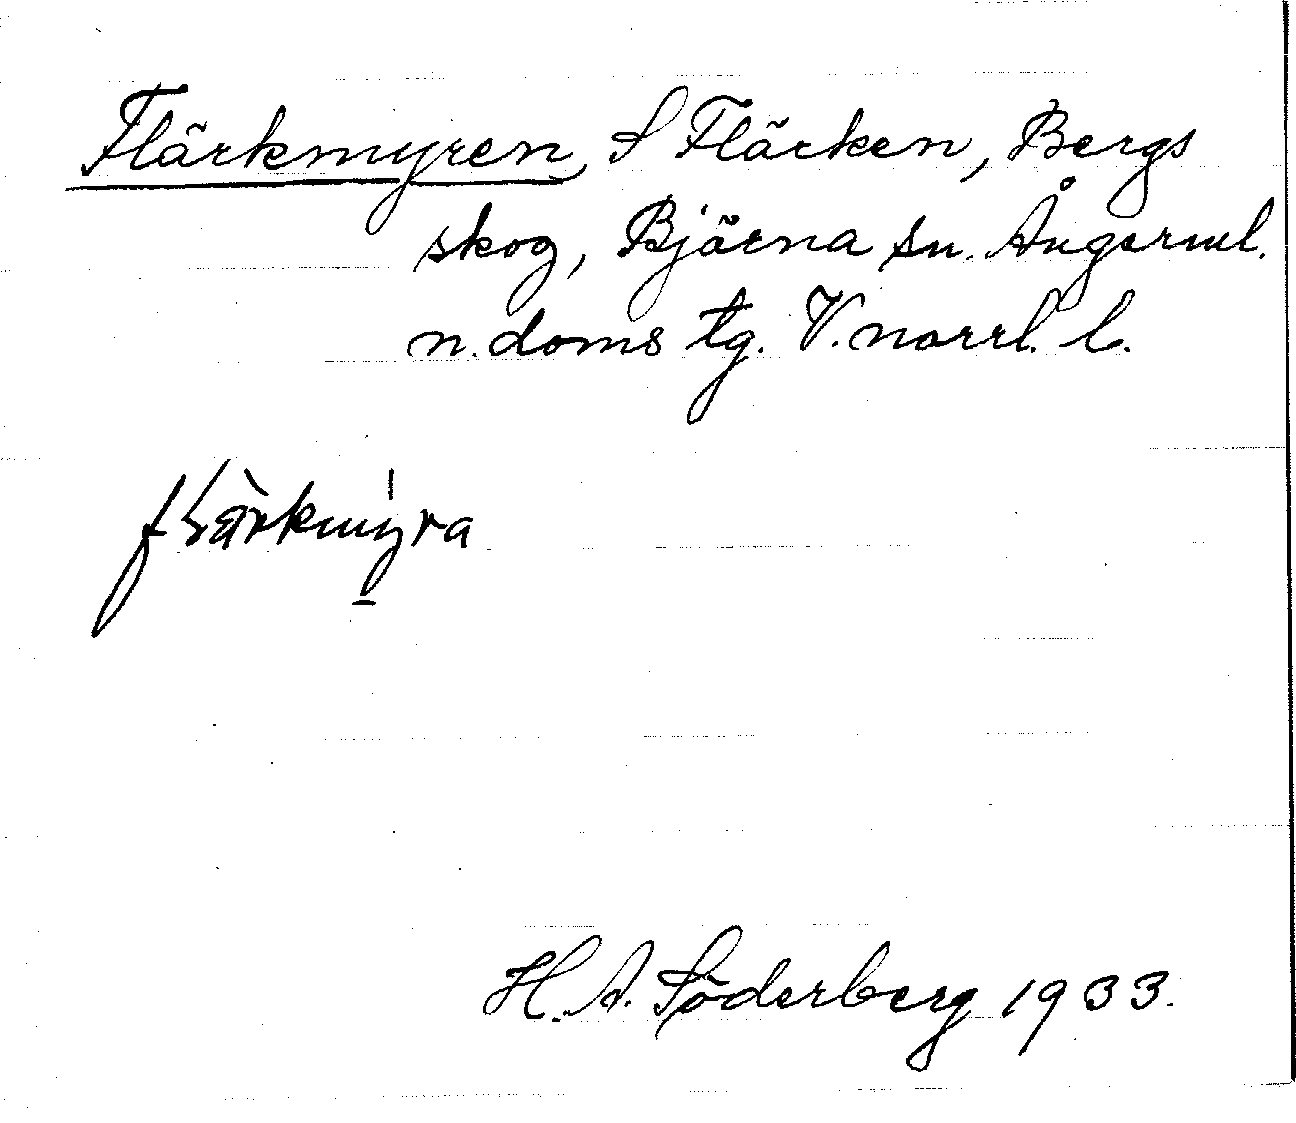 Flärkmyren, S Flärken, Bergs
skog, Bjärna sn. Ångerml.
n. doms tg. V. norrl. l.
flärkmyra
H. A. Söderberg 1933.